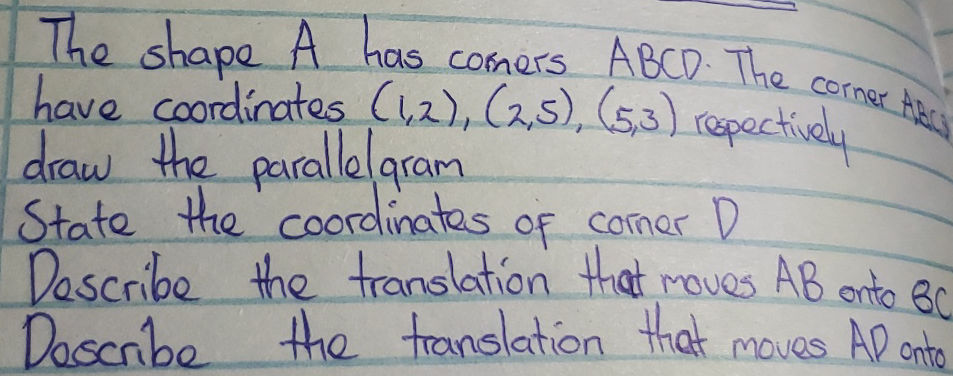 The shape A has corners ABCD. The corner ABCD
have coordinates (1,2), (2,5), (5,3) respectively
draw the parallelgram
State the coordinates of corner D
Describe the translation that moves AB onto BC
Describe the translation that moves AD onto